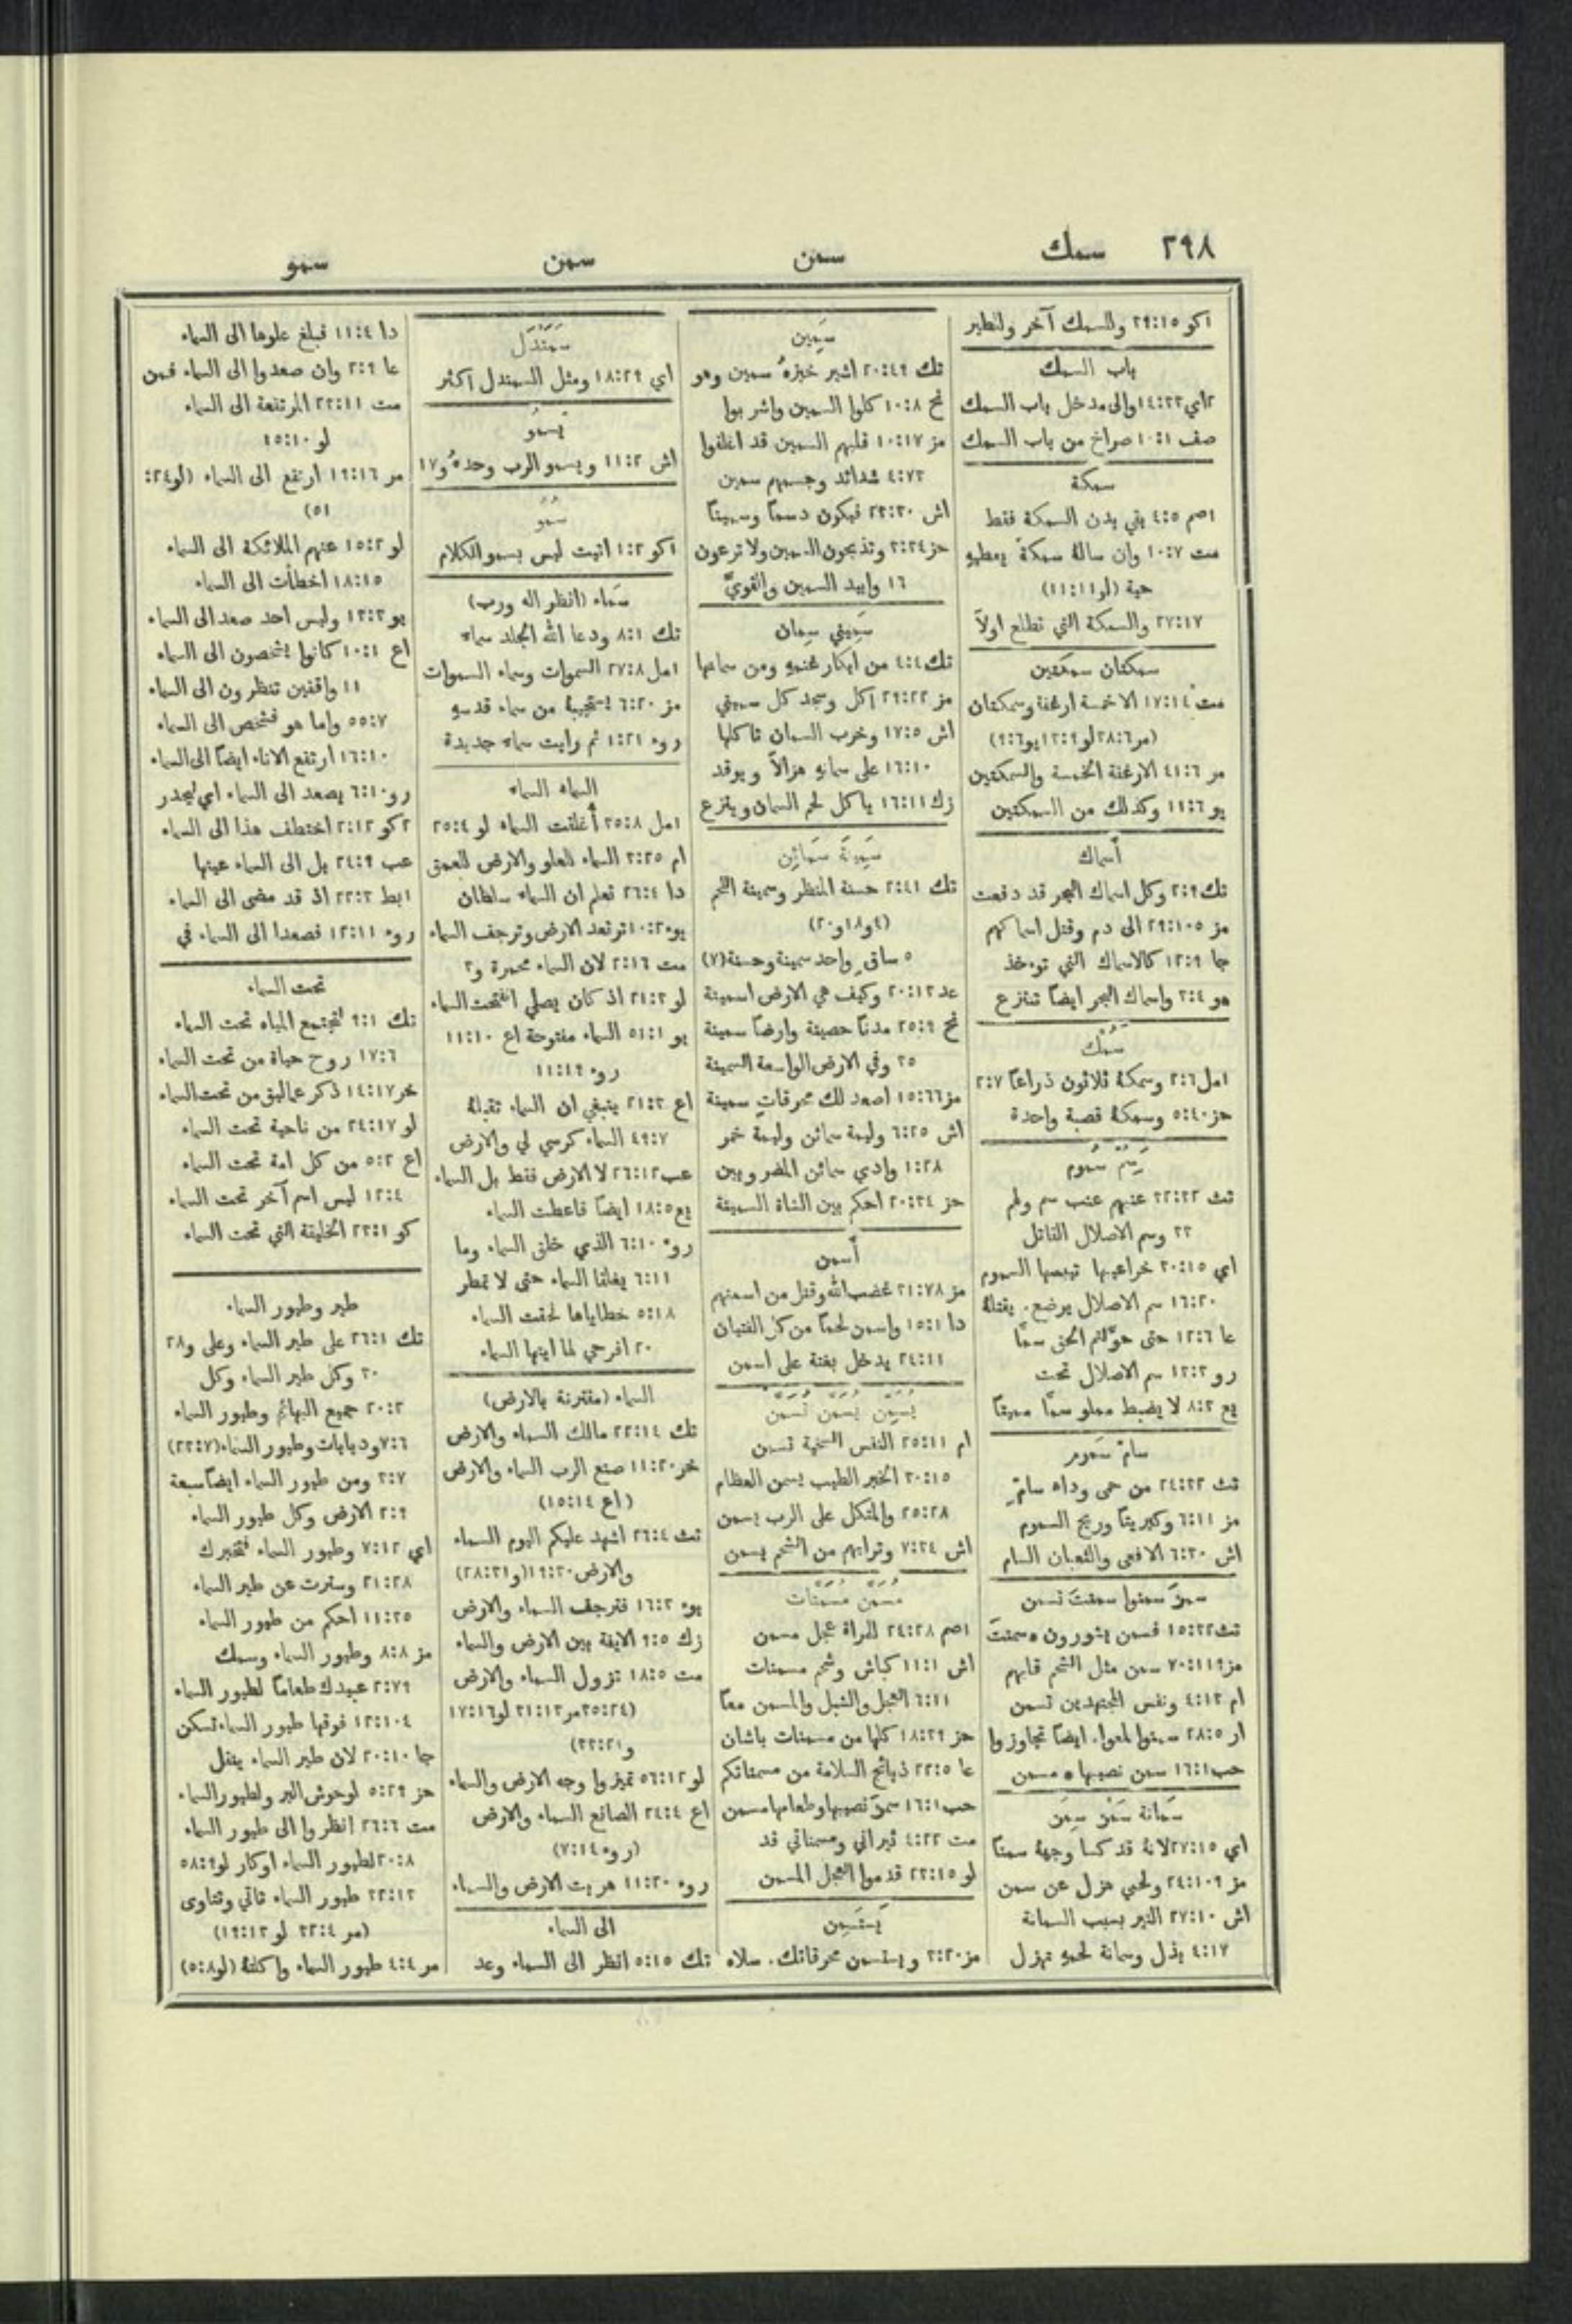 ٢٩٨
سمك
سمن
سمن
سمو
١كو ٣٩:١٥ والسمك آخر وللطير
باب السمك
٢اي ١٤:٣٣ والى مدخل باب السمك
صف ١٠:١ صراخ من باب السمك
سمكة
١صم ٤:٥ بقي بدن السمكة فقط
مت ١٠:٧ وان سالهُ سمكةً يعطيهِ
حية (لو ١١:١١)
٢٧:١٧ والسمكة التي تطلع اولاً
سمكتان سمكتين
مت ١٧:١٤ الا خمسة ارغفة وسمكتان
(مر ٣٨:٦ لو ١٣:٩ يو ٩:٦)
مر ٤١:٦ الارغفة الخمسة والسمكتين
يو ١١:٦ وكذلك من السمكتين
أسماك
تك ٢:٩ وكل اسماك البحر قد دفعت
مز ٢٩:١٠٥ الى دم وقتل اسماكهم
جا ١٢:٩ كالاسماك التي توءخذ
هو ٣:٤ واسماك البحر ايضًا تنتزع
سَمْك
١مل ٢:٦ وسمكهُ ثلاثون ذراعًا ٢:٧
حز ٥:٤٠ وسمكهُ قصبة واحدة
سُمّ سُموم
تث ٣٢:٣٢ عنبهم عنب سم ولهم
٣٣ وسم الاصلال القاتل
اي ٢٠:١٥ السموم
١٦:٢٠ سم الاصلال يرضع. يقتلهُ
عا ١٢:٦ حتى حوّلتم الحق سمًّا
رو ١٣:٣ سم الاصلال تحت
يع ٨:٣ لا يضبط مملو سمًّا مميتًا
سامّ سَموم
تث ٢٤:٣٢ من حمى وداء سامّ
مز ٦:١١ وكبريتًا وريح السموم
اش ٦:٣٠ الافعى والثعبان السام
سمن سمنوا سمنتَ تسمن
تث ١٥:٣٢ فسمن يشورون ٭ سمنتَ
مز ٧٠:١١٩ سمن مثل الشحم قلبهم
ام ٤:١٣ ونفس المجتهدين تسمن
ار ٢٨:٥ سمنوا لمعوا. ايضًا تجاوزوا
حب ١٦:١ سمن نصيبها ٭ مسمن
سَمانة سَمْن سِمَن
اي ٢٧:١٥ لانهُ قد كسا وجههُ سمنًا
مز ٢٤:١٠٩ ولحمي هزل عن سمن
اش ٢٧:١٠ النير بسبب السمانة
٤:١٧ يذل وسمانة لحمهِ تهزل
سَمِين
تك ٢٠:٤٩ اشير خبزهُ سمين وهو
نح ١٠:٨ كلوا السمين واشربوا
مز ١٠:١٧ قلبهم السمين قد اغلقوا
٤:٧٣ شدائد وجسمهم سمين
اش ٢٣:٣٠ فيكون دسمًا وسمينًا
حز ٣:٣٤ وتذبحون السمين ولا ترعون
١٦ وابيد السمين والقويَّ
سَمِيني سِمان
تك ٤:٤ من ابكار غنمهِ ومن سمانها
مز ٢٩:٢٢ اكل وسجد كل سميني
اش ١٧:٥ وخرب السمان تاكلها
١٦:١٠ على سمانهِ هزالاً ويوقد
زك ١٦:١١ ياكل لحم السمان وينزع
سَمِينَة سَمَائِن
تك ٢:٤١ حسنة المنظر وسمينة اللحم
(٤ و١٨ و٢٠)
٥ ساقٍ واحد سمينة وحسنة (٧)
عد ٢٠:١٣ وكيف هي الارض اسمينة
نح ٢٥:٩ مدنًا حصينة وارضًا سمينة
٣٥ وفي الارض الواسعة السمينة
مز ١٥:٦٦ اصعد لك محرقاتٍ سمينة
اش ٦:٢٥ وليمة سمائن وليمة خمر
١:٢٨ وادي سمائن المضروبين
حز ٢٠:٣٤ احكم بين الشاة السمينة
أسمن
مز ٣١:٧٨ غضب الله وقتل من اسمنهم
دا ١٥:١ واسمن لحمًا من كل الفتيان
٢٤:١١ يدخل بغتة على اسمن
يُسَمِّن يُسَمَّن تُسَمَّن
ام ٢٥:١١ النفس السخية تسمن
٣٠:١٥ الخبر الطيب يسمن العظام
٢٥:٢٨ والمتكل على الرب يسمن
اش ٧:٣٤ وترابهم من الشحم يسمن
مُسَمَّن مُسَمَّنات
١صم ٢٤:٢٨ للمراة عجل مسمن
اش ١١:١ كباش وشحم مسمنات
٦:١١ العجل والشبل والمسمن معًا
حز ١٨:٣٩ كلها من مسمنات باشان
عا ٢٢:٥ ذبائح السلامة من مسمناتكم
حب ١٦:١ سمن نصيبها وطعامها مسمن
مت ٤:٢٢ ثيراني ومسمناتي قد
لو ٢٣:١٥ قدموا العجل المسمن
يَستَسمِن
مز ٣:٢٠ ويستسمن محرقاتك. سلاه
سَمَنْدَل
اي ١٨:٢٩ ومثل السمندل اكثر
يَسمُو
اش ١١:٢ ويسمو الرب وحدهُ و١٧
سُمُوّ
١كو ١:٢ اتيت ليس بسمو الكلام
سَماء (انظر اله ورب)
تك ٨:١ ودعا الله الجلد سماء
١مل ٢٧:٨ السموات وسماء السموات
مز ٦:٢٠ يستجيبهُ من سماء قدسهِ
روء ١:٢١ ثم رايت سماء جديدة
السماء السماء
١مل ٣٥:٨ أُغلقت السماء لو ٢٥:٤
ام ٣:٢٥ السماء للعلو والارض للعمق
دا ٢٦:٤ تعلم ان السماء سلطان
يوء ١٠:٢ ترتعد الارض وترجف السماء
مت ٢:١٦ لان السماء محمرة و٣
لو ٢١:٣ اذ كان يصلي انفتحت السماء
يو ٥١:١ السماء مفتوحة اع ١١:١٠
روء ١١:١٩
اع ٢١:٣ ينبغي ان السماء تقبلهُ
٤٩:٧ السماء كرسي لي والارض
عب ٢٦:١٢ لا الارض فقط بل السماء
يع ١٨:٥ ايضًا فاعطت السماء
روء ٦:١٠ الذي خلق السماء وما
٦:١١ يغلقا السماء حتى لا تمطر
٥:١٨ خطاياها لحقت السماء
٢٠ افرحي لها ايتها السماء
السماء (مقترنة بالارض)
تك ٢٢:١٤ مالك السماء والارض
خر ١١:٢٠ صنع الرب السماء والارض
(اع ١٥:١٤)
تث ٢٦:٤ اشهد عليكم اليوم السماء
والارض ١٩:٣٠ (و٢٨:٣١)
يوء ١٦:٣ فترجف السماء والارض
زك ٩:٥ الايفة بين الارض والسماء
مت ١٨:٥ تزول السماء والارض
(٣٥:٢٤ مر ٣١:١٣ لو ١٧:١٦
و٣٣:٢١)
لو ٥٦:١٢ تميزوا وجه الارض والسماء
اع ٢٤:٤ الصانع السماء والارض
(روء ٧:١٤)
روء ١١:٢٠ هربت الارض والسماء
الى السماء
تك ٥:١٥ انظر الى السماء وعد
دا ١١:٤ فبلغ علوها الى السماء
عا ٢:٩ وان صعدوا الى السماء فمن
مت ٢٣:١١ المرتفعة الى السماء
لو ١٥:١٠
مر ١٩:١٦ ارتفع الى السماء (لو ٢٤:
٥١)
لو ١٥:٢ عنهم الملائكة الى السماء
١٨:١٥ اخطأت الى السماء
يو ١٣:٣ وليس احد صعد الى السماء
اع ١٠:١ كانوا يشخصون الى السماء
١١ واقفين تنظرون الى السماء
٥٥:٧ واما هو فشخص الى السماء
١٦:١٠ ارتفع الاناء ايضًا الى السماء
رو ٦:١٠ يصعد الى السماء اي ليحدر
٢كو ٢:١٢ اختطف هذا الى السماء
عب ٢٤:٩ بل الى السماء عينها
١بط ٢٢:٣ اذ قد مضى الى السماء
روء ١٢:١١ فصعدا الى السماء في
تحت السماء
تك ٩:١ لتجتمع المياه تحت السماء
١٧:٦ روح حياة من تحت السماء
خر ١٤:١٧ ذكر عماليق من تحت السماء
لو ٢٤:١٧ من ناحية تحت السماء
اع ٥:٢ من كل امة تحت السماء
١٢:٤ ليس اسم آخر تحت السماء
كو ٢٣:١ الخليقة التي تحت السماء
طير وطيور السماء
تك ٢٦:١ على طير السماء وعلى و٢٨
٣٠ وكل طير السماء وكل
٢٠:٢ جميع البهائم وطيور السماء
٧:٦ ودبابات وطيور السماء (٢٣:٧)
٣:٧ ومن طيور السماء ايضًا سبعة
٢:٩ الارض وكل طيور السماء
اي ٧:١٢ وطيور السماء فتخبرك
٢١:٢٨ وسترت عن طير السماء
١١:٣٥ احكم من طيور السماء
مز ٨:٨ وطيور السماء وسمك
٢:٧٩ عبيدك طعامًا لطيور السماء
١٢:١٠٤ فوقها طيور السماء تسكن
جا ٢٠:١٠ لان طير السماء ينقل
حز ٥:٢٩ لوحوش البر ولطيور السماء
مت ٢٦:٦ انظروا الى طيور السماء
٢٠:٨ لطيور السماء اوكار لو ٥٨:٩
٣٢:١٣ طيور السماء تاتي وتتاوى
(مر ٣٢:٤ لو ١٩:١٣)
مر ٤:٤ طيور السماء واكلتهُ (لو ٥:٨)